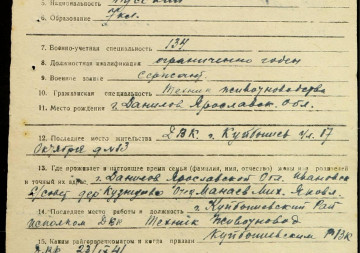 5. Национальность Русский
6. Образование 7 кл.
7. Военно-учетная специальность 134
8. Должностная квалификация ограниченно годен
9. Военное звание сержант
10. Гражданская специальность Техник животноводства
11. Место рождения г. Данилов Ярославск. Обл.
12. Последнее место жительства ДВК г. Куйбышев ул. 17
Октября д. №13
13. Где проживает в настоящее время семья (фамилия, имя, отчество) имена родителей
и точный их адрес г. Данилов Ярославской Обл. Ивановск
С/совет дер. Отец Манаев Мих. Яковл.
14. Последнее место работы и должность г. Куйбышевский Рай-
исполком ДВК Техник Животновод
15. Каким райгорвоенкоматом и когда призван Куйбышевским РВК